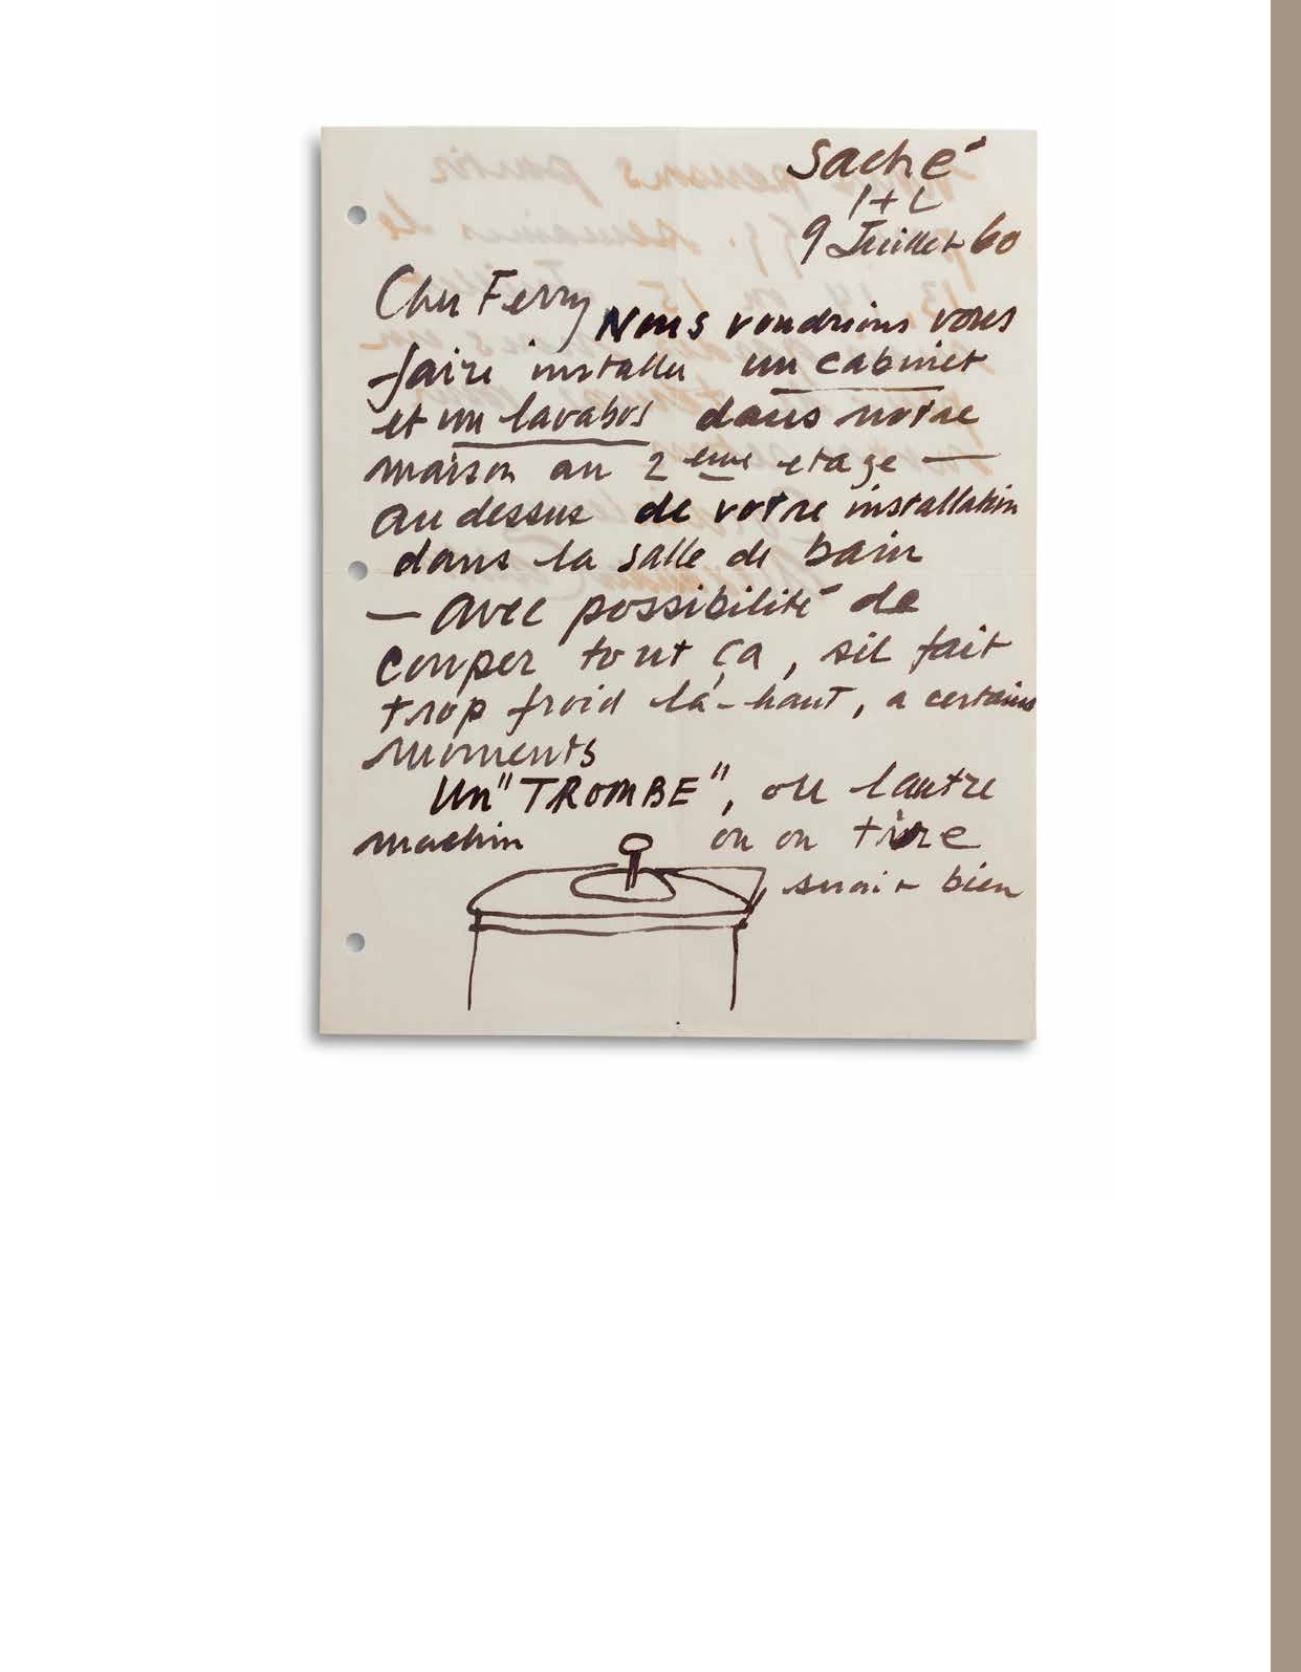 Saché
I+L
9 Juillet 60
Cher Ferry
Nous voudrions vous
faire installer un cabinet
et un lavabos dans notre
maison au 2 eme etage —
au dessus de votre installation
dans la salle de bain
— avec possibilité de
couper tout ça, sil fait
trop froid là-haut, a certains
moments
Un "TROMBE", ou lautre
machin ou on tire
serait bien